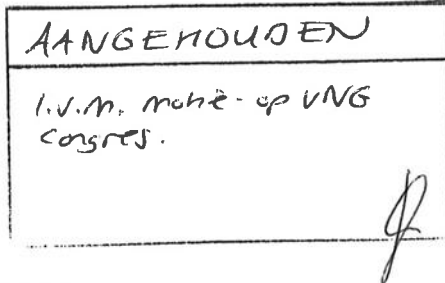 AANGEHOUDEN
i.v.m. motie - op VNG
congres.